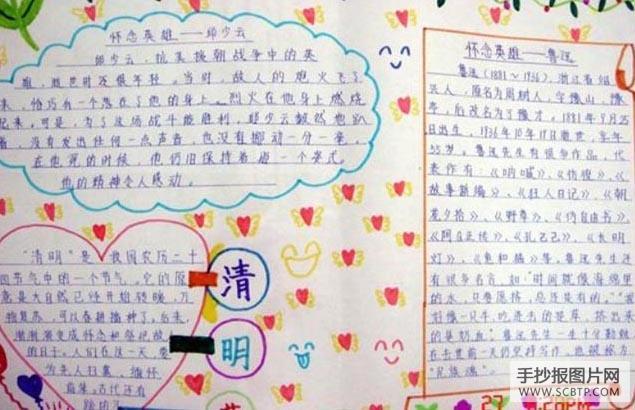 怀念英雄——邱少云
邱少云,抗美援朝战争中的英
雄,逝世时万很年轻。当时,敌人的炮火飞了
来,恰巧有一个落在了他的身上。烈火在他身上燃烧
起来。可是,为了这场战斗能胜利,邱少云毅然他趴
着,没有发出任何一点声音,也没有挪动一分一毫,
在他死的时候,他仍旧保持着趴一个姿式。
他的精神令人感动。
怀念英雄——鲁迅
鲁迅(1881~1936),浙江省绍
兴人,原名为周树人,字豫山、豫
亭,后改名为了豫才。1881年9月25
日出生,1936年10月19日逝世,享年
55岁。鲁迅先生有很多作品,代
表作有:《呐喊》、《彷徨》、《
故事新编》、《狂人日记》、《朝
花夕拾》、《野草》、《伪自由书》、
《阿Q正传》、《孔乙己》、《长明
灯》、《兔和猫》等,鲁迅先生还
有很多名言,如"时间就像海绵里
的水,只要愿挤,总还是有的。"
好像一只牛,吃进去的是草,挤出来
的是奶血。鲁迅先生一生十分勤奋
在去世前一天仍坚持写作,他被称为
"民族魂"。
"清明"是我国农历二十
四节气中的一个节气。它的原
意是大自然已经开始转暖,万
物复苏,可以春耕播种了,后来
渐渐演变成怀念和祭祀故
的日子。人们在这一天,要
为亲人扫墓,缅怀
清
明
手抄报图片网
WWW.SCBTP.COM